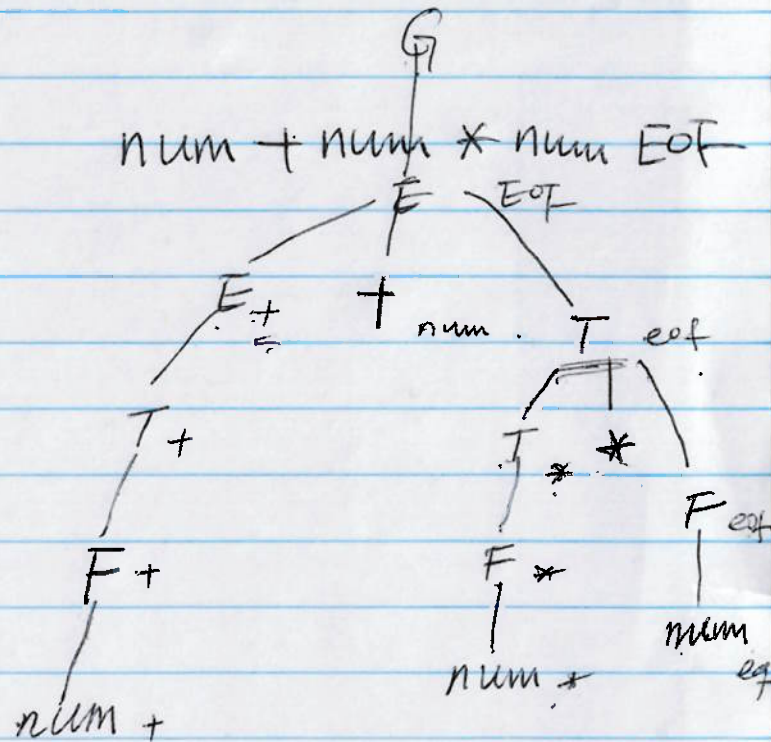 G
num + num * num EOF
E EOF
E + + num T eof
T + T * * F eof
F + F * num eof
num + num *